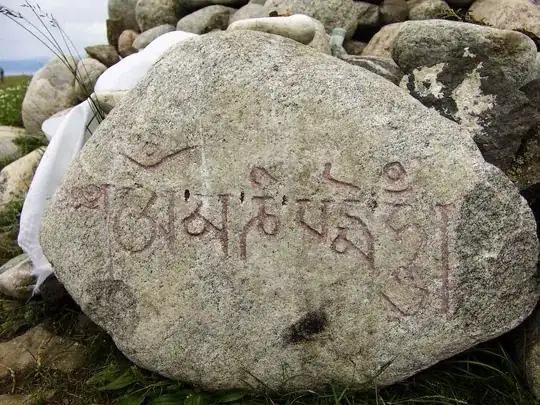 ༄ ༀ་མ་ཎི་པདྨེ་ཧཱུྃ།